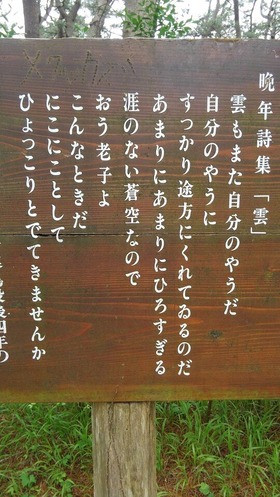 晩年詩集「雲」
雲もまた自分のやうだ
自分のやうに
すっかり途方にくれてゐるのだ
あまりにあまりにひろすぎる
涯のない蒼空なので
おう老子よ
こんなときだ
にこにことして
ひょっこりとでてきませんか
没後四年の